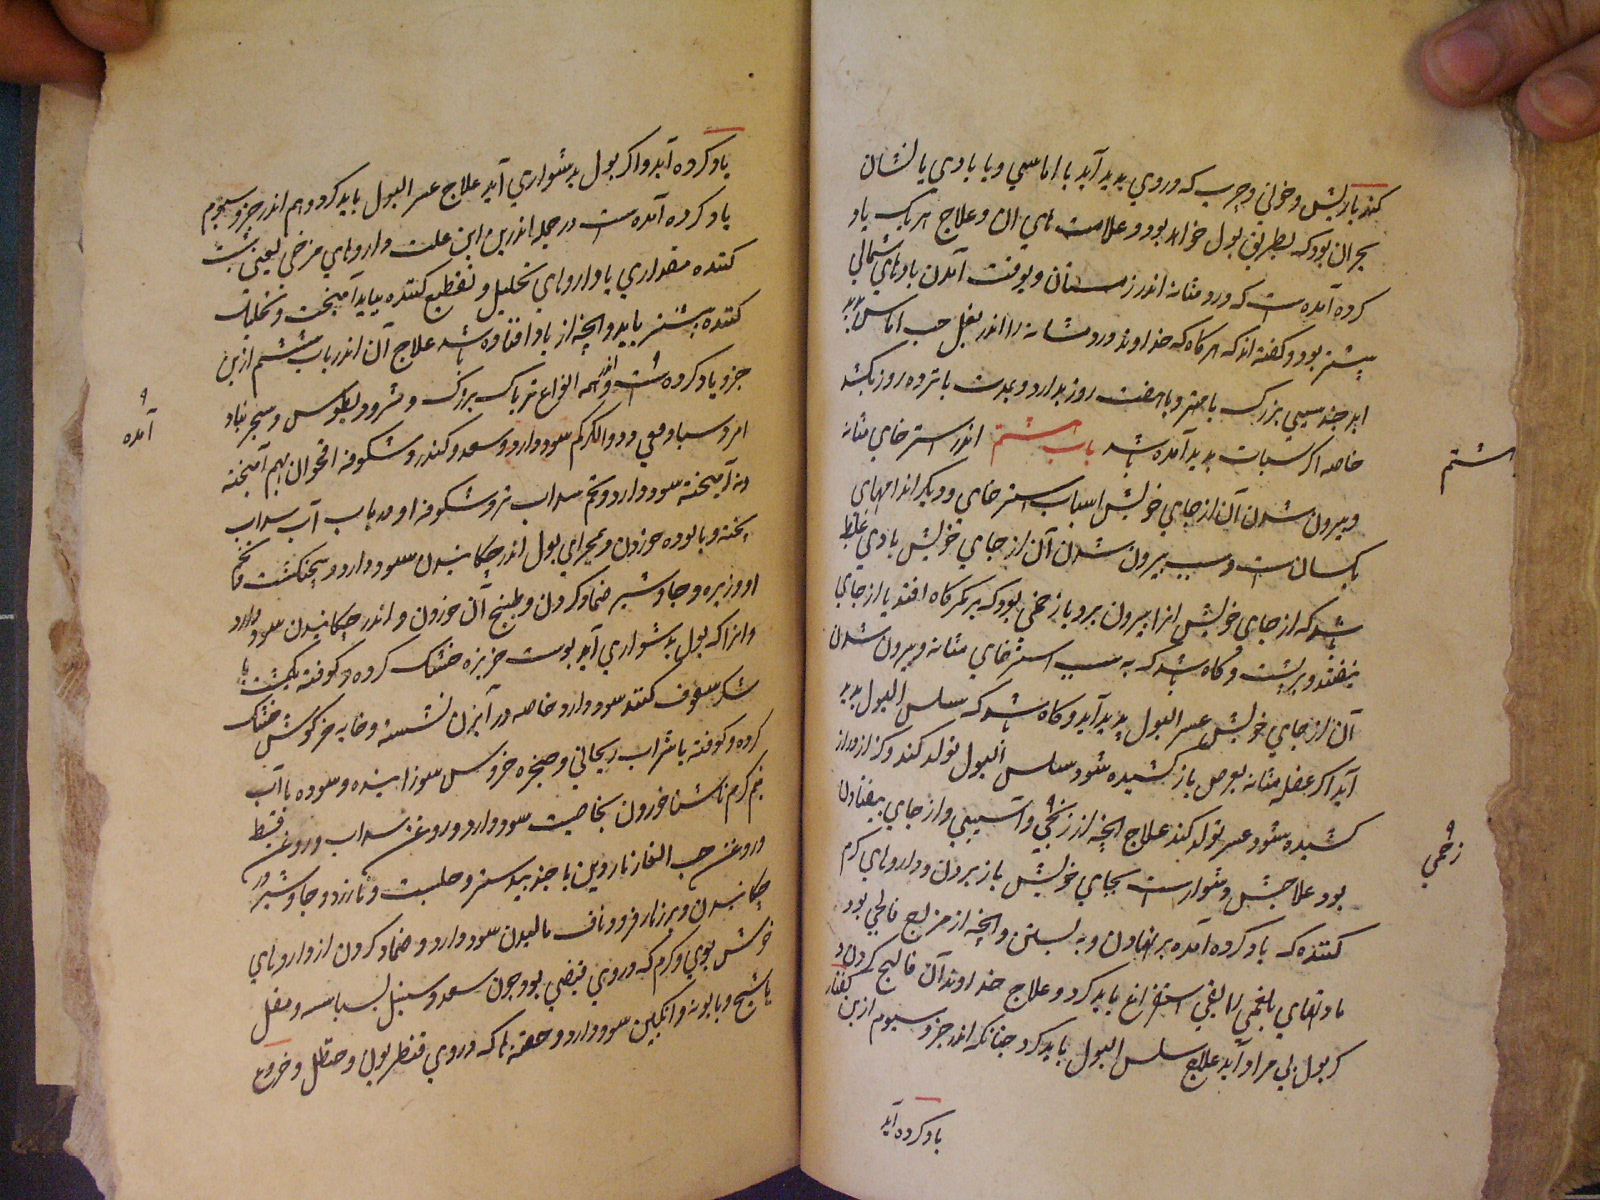 کند باریش و خونی و جرب که دروی پدید آید با اماسی و یا بادی یا نشان
بحران بود که بطریق بول خواهد بود و علامت های آن و علاج هر یک یاد
کرده آمده است که درد مثانه اندر زمستان و بوقت آمدن بادهای شمالی
بیشتر بود و گفته اند که هرکاه که خداوند درد مثانه را اندر بغل چپ اماس پدید
آید چند سیبی بزرک یا مهتر و یا هفت روز بدارد و بمدت پانزده روز بکشد
خاصه اگر سبات پدید آمده باشد باب ششم اندر استرخای مثانه
ششم
و بیرون شدن آن از جای خویش اسباب استرخای و دیکر اندامهای
یکسان است و سبب بیرون شدن آن از جای خویش بادی غلیظ
باشد که از جای خویش انرا بیرون برد یا زخمی بود که بر کمرگاه افتد یا از جای
بیفتد و بر پشت و گاه باشد که به سبب استرخای مثانه و بیرون شدن
آن از جای خویش عسر البول پدید آید و گاه باشد که سلس البول پدید
آید اگر عضله مثانه بعرض باز کشیده شود سلس البول تولد کند و کر از دراز
کشیده شود عسر تولد کند علاج آنچه از زخمی و آسیبی و از جای بیفتادن
زخمی
بود علاجش دشوارست بجای خویش باز بردن و داروهای گرم
کننده که یاد کرده آمده برنهادن و به بستن و آنچه از مزاج فالجی بود
مادتهای بلغمی را بقی استفراغ باید کرد و علاج خداوند آن فالج کردن و
کر بول بی مراد آید علاج سلس البول باید کرد چنانکه اندر جزو سیوم ازین گفتار
یاد کرده آید
یاد کرده آید و اگر بول بدشواری آید علاج عسر البول باید کرد و هم اندر جزو سیوم
یاد کرده آمده است در جمله اندرین این علت داروهای مرخی یعنی سست
کننده مقداری با داروهای تحلیل و تقطیع کننده بیاید آمیخت و تحلیل
کننده بیشتر باید و آنچه از باد افتاده باشد علاج آن اندر باب ششم ازین
جزو یاد کرده است و اندر همه انواع تریاک بزرک و مثرودیطوس و سجرنیا و
آمده
امروسیا و معجی و دوالکرکم سود دارد و سعد و کندر و شکوفه اقحوان بهم آمیخته
آمیخته سود دارد و تخم سداب تر و شکوفه او در باب آب سداب
پخته و پالوده خوردن و بمجرای بول اندر چکانیدن سود دارد و پنجنکشت و تخم
او و زیره و جاوشیر ضماد کردن و طبیخ آن خوردن و اندر چکانیدن سود دارد
و انرا که بول بدشواری آید پوست خربزه خشک کرده و کوفته بیخت با
شکر سفوف کنند سود دارد خاصه در آبزن نشسته و خایه خرگوش خشک
کرده و کوفته با شراب ریحانی و حنجره خروس سوزانیده و سوده با آب
نیم گرم ناشتا خوردن بخاصیت سود دارد و روغن سداب و روغن قسط
و روغن حب الغار ناردین با جندبیدستر و حلتیت و بارزد و جاوشیر در
چکانیدن و بر زهار فرود ناف مالیدن سود دارد و ضماد کردن از داروهای
خوش بوی و گرم که دروی قبضی بود چون سعد و سنبل بسباسه و مقل
با شبح و بابونه و انکبین سود دارد و حقنه ها که دروی قنطریون و حنظل و خروع